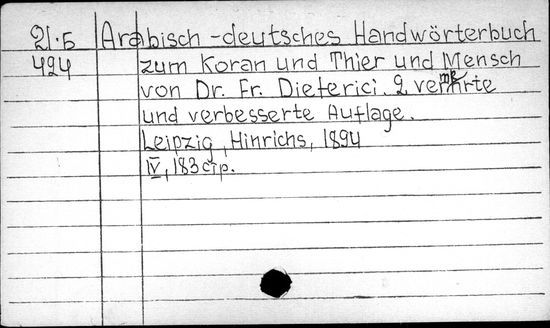 21.5 Arabisch-deutsches Handwörterbuch
424 zum Koran und Thier und Mensch
von Dr. Fr. Dieterici. 2. vermehrte
und verbesserte Auflage.
Leipzig, Hinrichs, 1894
IV, 183 стр.